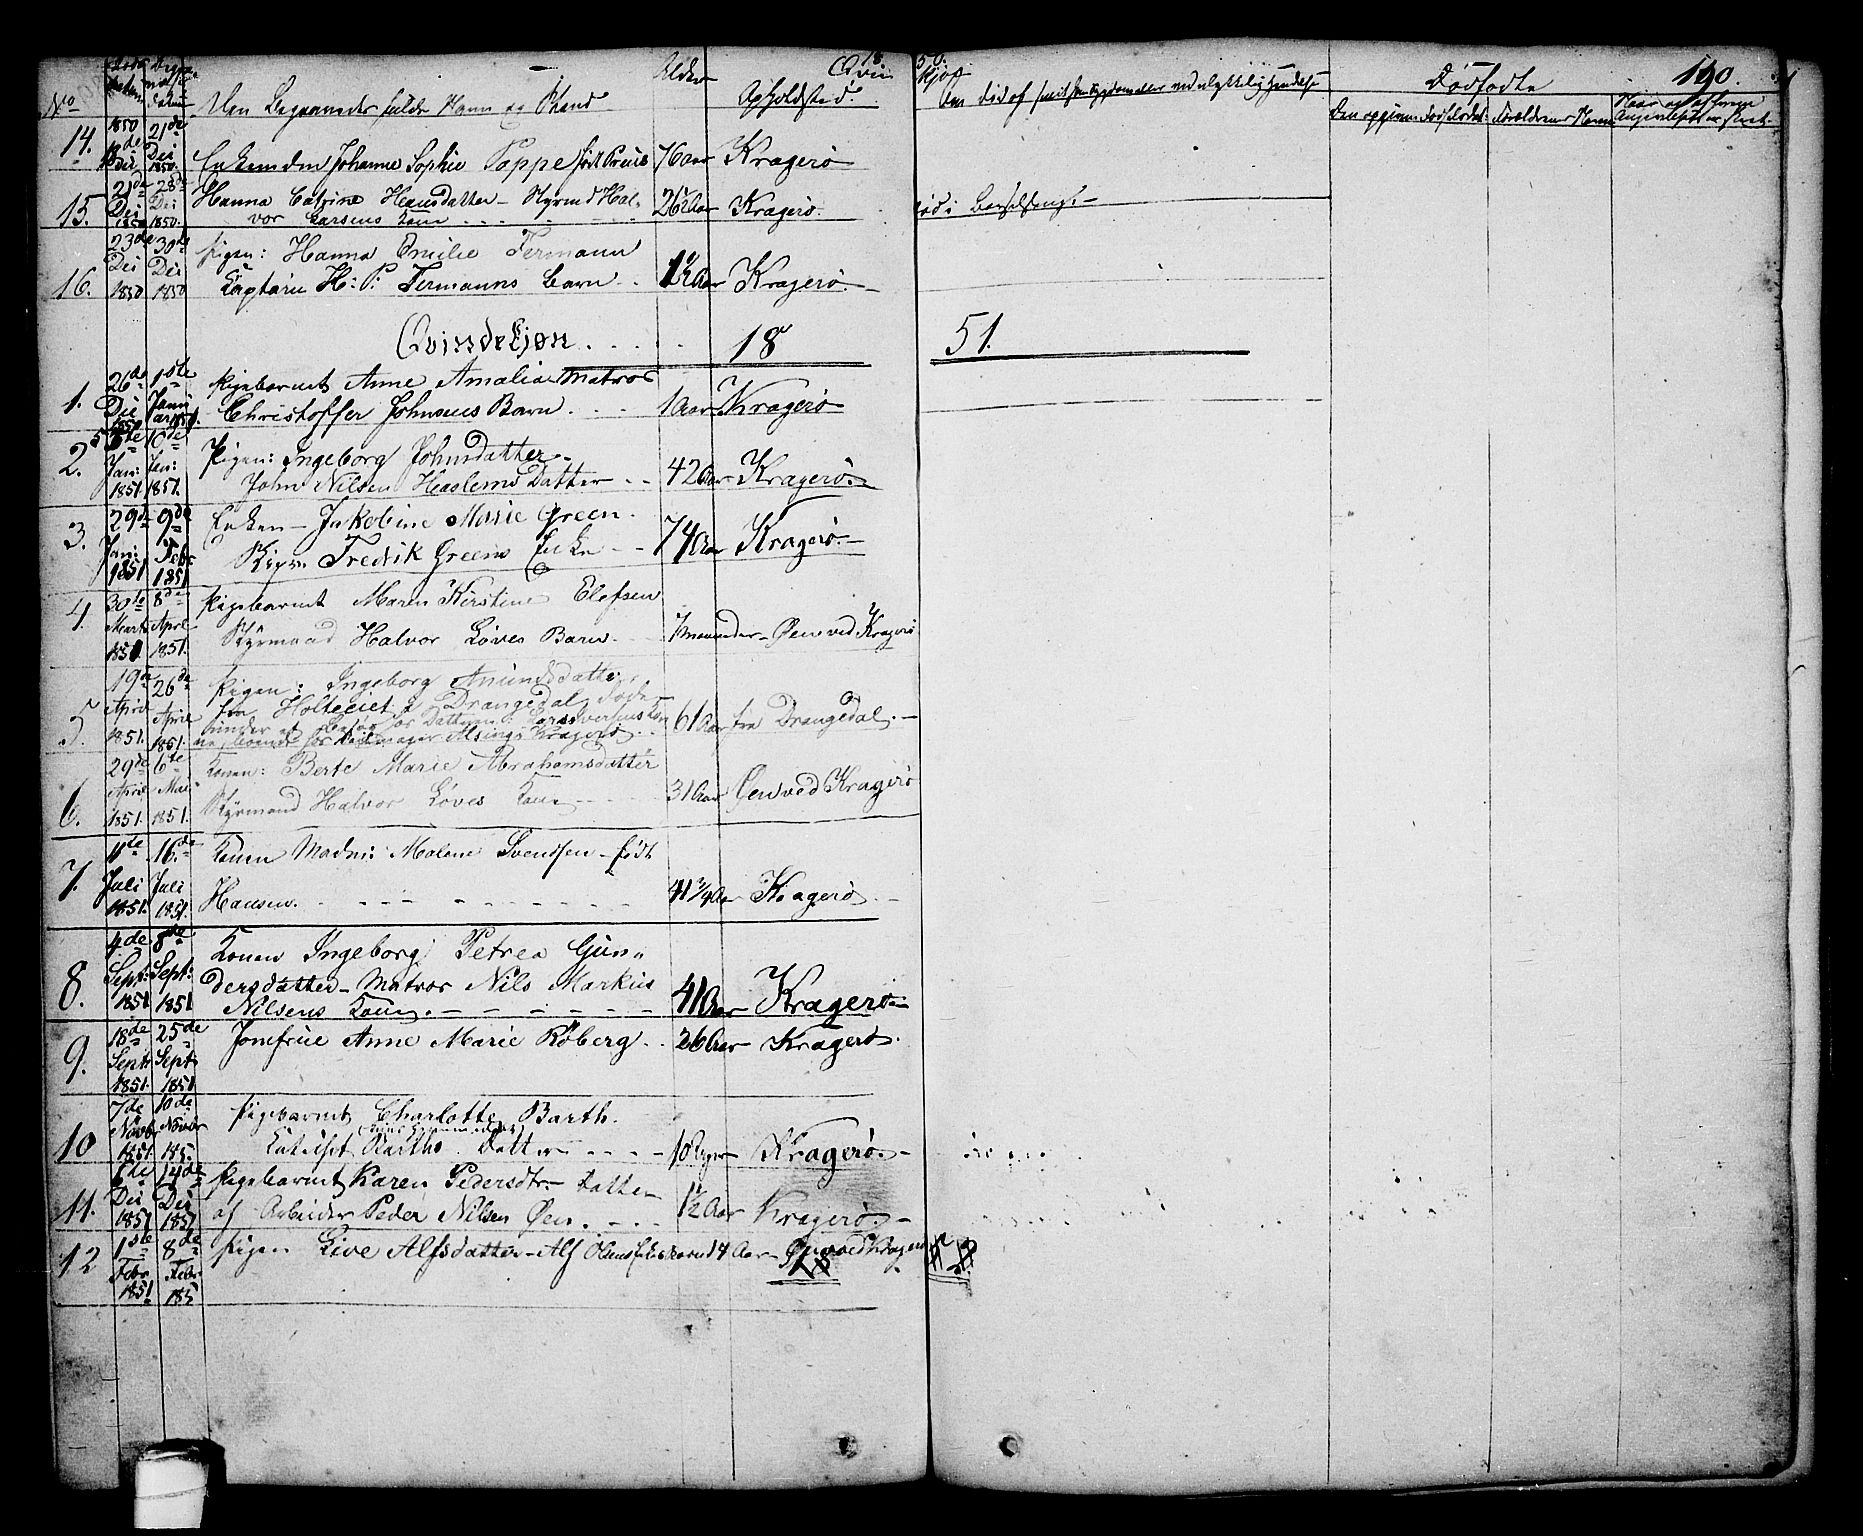 18 50.
Qvin kjøn 190.
No Døds datum Den Begravedes fulde Navn og Stand Alder Opholdsted. Dødfødte
14. 18de Dec 1850 21de Dec 1850. Enkemadm Johanne Sophie Poppe født Preus 76 Aar Kragerø
15. 21de Dec 1850 28de Dec 1850. Hanna Catrine Hansdatter Styrmd Hal-
vor Larsens Kone 26½ Aar Kragerø. død i Barselseng
16. 23de Dec 1850 30de Dec 1850 Pigen: Hanna Emilie Fermann
Captain H: P: Fermanns Barn 1½ Aar Kragerø.
Qvindekjøn . . . . . 18 51.
1. 26de Dec 1850 1ste Januar 1851. Pigebarnet Anne Amalia Matros
Christoffer Johnsens Barn 1 Aar Kragerø
2. 5te Jan: 1851. 10de Jan: 1851. Pigen: Ingeborg Johnsdatter
John Nilsen Haslems Datter 42 Aar Kragerø.
3. 29de Jan: 1851 9de Febr 1851 Enken Jakobine Marie Green
Fredrik Greens Enke 74 Aar Kragerø.
4. 30te Marts 1851. 8de April 1851. Pigebarnet Maren Kirstine Elefsen
Styrmand Halvor Løves Barn 7 Maaneder Øen ved Kragerø
5. 19de April 1851. 26de April 1851. Pigen: Ingeborg Amundsdatter
fra Holteeiet i Drangedal døde
under et Besøg hos Datteren
Kragerø 61 Aar fra Drangedal.
6. 29de April 1851. 6te Mai 1851. Konen: Berte Marie Abrahamsdatter
Styrmand Halvor Løves Kone 31 Aar Øen ved Kragerø
7. 11de Juli 1851. 16de Juli 1851. Konen Madm: Malene Svendsen født
Hansen. 41 ¾ Aar Kragerø
8. 4de Sept: 1851 8de Sept: 1851 Konen Ingeborg Petrea Gun-
dersdatter Matros Nils Markus
Nilsens Kone. 41 Aar Kragerø
9. 18de Septr 1851. 25de Septr 1851 Jomfrue Anne Marie Röberg 26 Aar Kragerø.
10 7de Novbr 1851. 10de Novbr 185. Pigebarnet Charlotte Barth
Barths Datter 10 Dage Kragerø.
11. 6de Dec 1851 14de Dec 1851 Pigebarnet Karen Pedersdtr Datter
af Arbeider Peder Nilsen Øen. 1½ Aar Kragerø.
12 1ste Febr 1851 8de Febr 185 Pigen Live Alfsdatter Alf Olens Barn 14 Aar Øen ved Kragerø